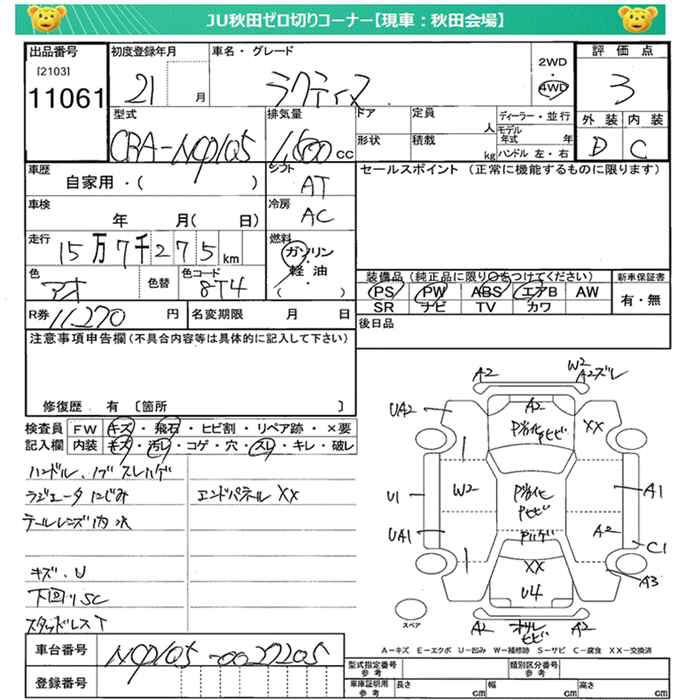 JU秋田ゼロ切りコーナー【現車：秋田会場】
出品番号 初度登録年月 車名・グレード 2WD・4WD 評価点
[2103]
11061 21 月 ラクティス 3
型式 排気量 ドア 定員 人 ディーラー・並行 外装 内装
CBA-NCP105 1,500 cc 形状 積載 kg モデル年式 年 ハンドル 左・右 D C
車歴 シフト セールスポイント（正常に機能するものに限ります）
自家用・（ ） AT
車検 冷房
年 月（ 日） AC
走行 燃料
15万7千275km ガソリン
軽油
（ ）
色 色替 色コード 装備品（純正品に限り○をつけてください） 新車保証書
アオ 8T4 PS PW ABS エアB AW 有・無
SR ナビ TV カワ
R券 11,270 円 名変期限 月 日 後日品
注意事項申告欄（不具合内容等は具体的に記入して下さい）
修復歴 有 〔箇所 〕
検査員 FW キズ・飛石・ヒビ割・リペア跡・×要
記入欄 内装 キズ・汚レ・コゲ・穴・スレ・キレ・破レ
ハンドル、ノブ スレハゲ
ラジエータにじみ エンドパネル XX
テールレンズ内水
キズ・U
下回りSC
スタッドレスT
A2 W2
A2ズレ
UA2 A2 XX
P劣化
Pヒビ
U1 W2 P劣化 A1
Pヒビ
UA1 Pハゲ A2 C1
XX
U4 A3
A2 ワレ A2
ヒビ
スペア
A－キズ E－エクボ U－凹み W－補修跡 S－サビ C－腐食 XX－交換済
車台番号 NCP105-0027205
登録番号
型式指定番号 参考 類別区分番号 参考
車庫証明用 参考 長さ cm 幅 cm 高さ cm